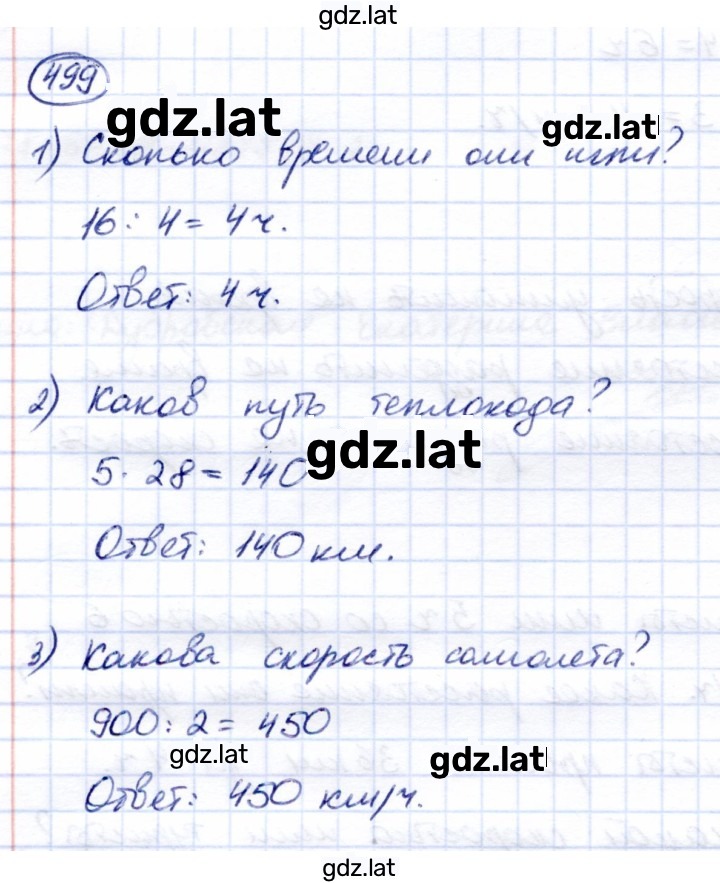 gdz.lat
499
gdz.lat
gdz.lat
1) Сколько времени они шли?
16 : 4 = 4 ч.
Ответ: 4 ч.
2) Каков путь теплохода?
gdz.lat
5 · 28 = 140
Ответ: 140 км.
3) Какова скорость самолета?
900 : 2 = 450
gdz.lat
gdz.lat
Ответ: 450 км/ч.
gdz.lat